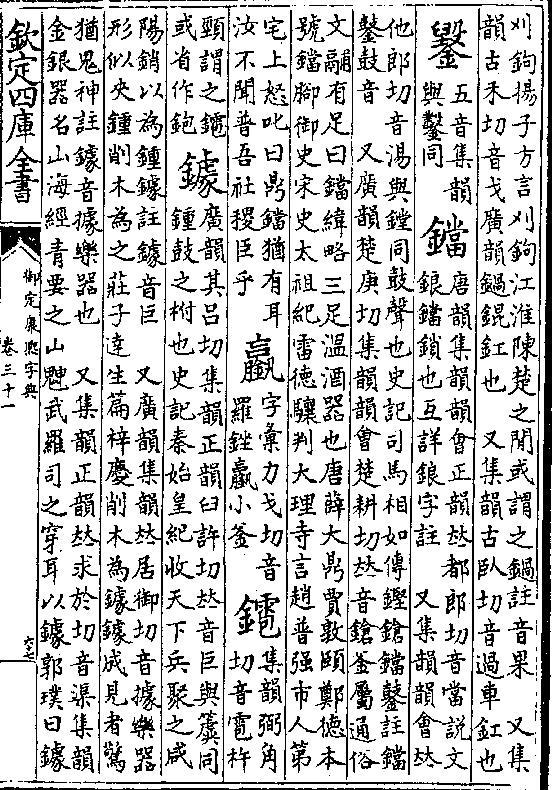 刈鉤揚子方言刈鉤江淮陳楚之閒或謂之鍋註音果　又集
韻古禾切音戈廣韻鍋錕釭也　又集韻古臥切音過車釭也
五音集韻
與鑿同
鐺
唐韻集韻韻會正韻𠀤都郎切音當說文
鋃鐺鎖也互詳鋃字註　又集韻韻會𠀤
他郎切音湯與鏜同鼓聲也史記司馬相如傳鏗鎗鐺鼛註鐺
鼛鼓音　又廣韻楚庚切集韻韻會楚耕切𠀤音鎗釜屬通俗
文鬴有足曰鐺緯略三足溫酒器也唐薛大鼎賈敦頤鄭德本
號鐺腳御史宋史太祖紀雷德驤判大理寺言趙普强市人第
宅上怒叱曰鼎鐺猶有耳
汝不聞普吾社稷臣乎
字彙力戈切音
羅銼小釜
集韻弼角
切音雹杵
頸謂之
或省作鉋
鐻
廣韻其呂切集韻正韻臼許切𠀤音巨與簴同
鍾鼓之柎也史記秦始皇紀收天下兵聚之咸
陽銷以為鍾鐻註鐻音巨　又廣韻集韻𠀤居御切音據樂器
形似夾鍾削木為之莊子達生篇梓慶削木為鐻鐻成見者驚
猶鬼神註鐻音據樂器也　又集韻正韻𠀤求於切音渠集韻
金銀器名山海經青要之山䰠武羅司之穿耳以鐻郭璞曰鐻
欽定四庫全書
御定康熙字典
卷三十一
六七